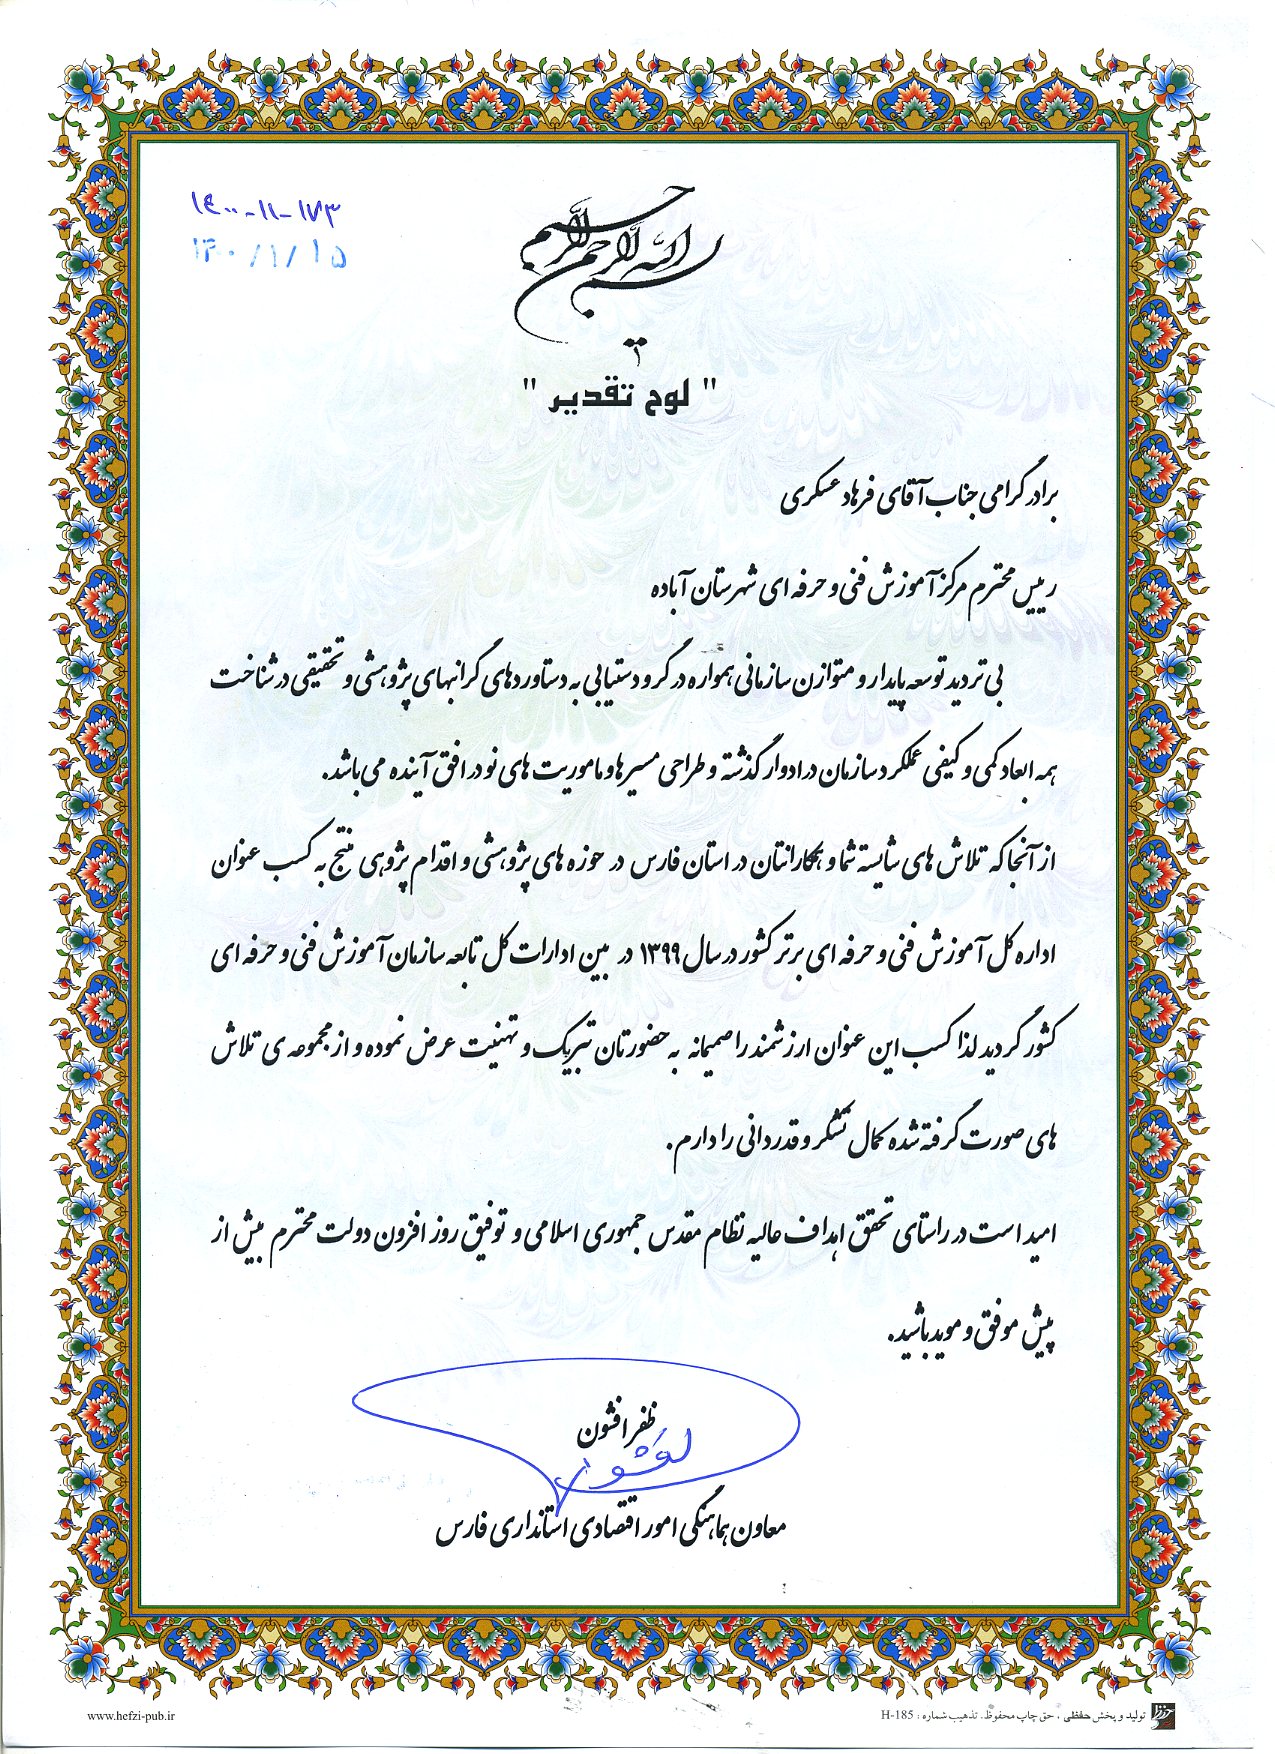 ۱۴۰۰-۱۱-۱۷۳
۱۴۰۰/۱/۱۵
بسم الله الرحمن الرحیم
" لوح تقدیر "
برادر گرامی جناب آقای فرهاد عسکری
رییس محترم مرکز آموزش فنی و حرفه ای شهرستان آباده
بی تردید توسعه پایدار و متوازن سازمانی همواره در گرو دستیابی به دستاوردهای گرانبهای پژوهشی و تحقیقی در شناخت
همه ابعاد کمی و کیفی عملکرد سازمان در ادوار گذشته و طراحی مسیرها و ماموریت های نو در افق آینده می باشد.
از آنجا که تلاش های شایسته شما و همکارانتان در استان فارس در حوزه های پژوهشی و اقدام پژوهی منتج به کسب عنوان
اداره کل آموزش فنی و حرفه ای برتر کشور در سال ۱۳۹۹ در بین ادارات کل تابعه سازمان آموزش فنی و حرفه ای
کشور گردید لذا کسب این عنوان ارزشمند را صمیمانه به حضورتان تبریک و تهنیت عرض نموده و از مجموعه ی تلاش
های صورت گرفته شده کمال تشکر و قدردانی را دارم.
امید است در راستای تحقق اهداف عالیه نظام مقدس جمهوری اسلامی و توفیق روز افزون دولت محترم بیش از
پیش موفق و موید باشید.
ظفر افشون
معاون هماهنگی امور اقتصادی استانداری فارس
تولید و پخش حفظی ، حق چاپ محفوظ. تذهیب شماره : H-185
www.hefzi-pub.ir